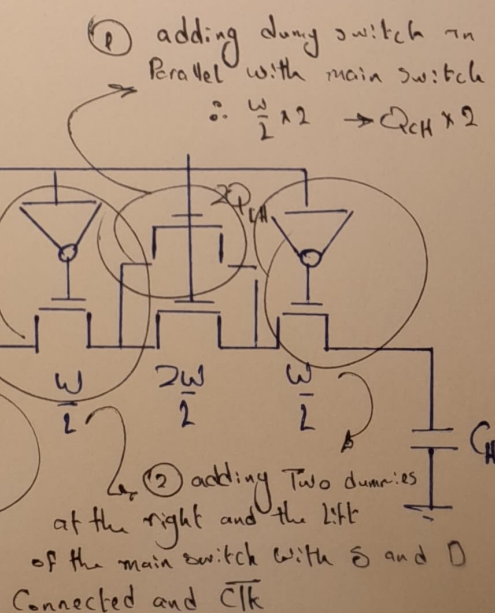 ① adding dumy switch in
Parallel with main switch
∴ W/2 x2 → QCH x2
2QCH
W/2 2W/2 W/2
CH
② adding Two dummies
at the right and the Lift
of the main switch with S and D
Connected and C̅l̅k̅